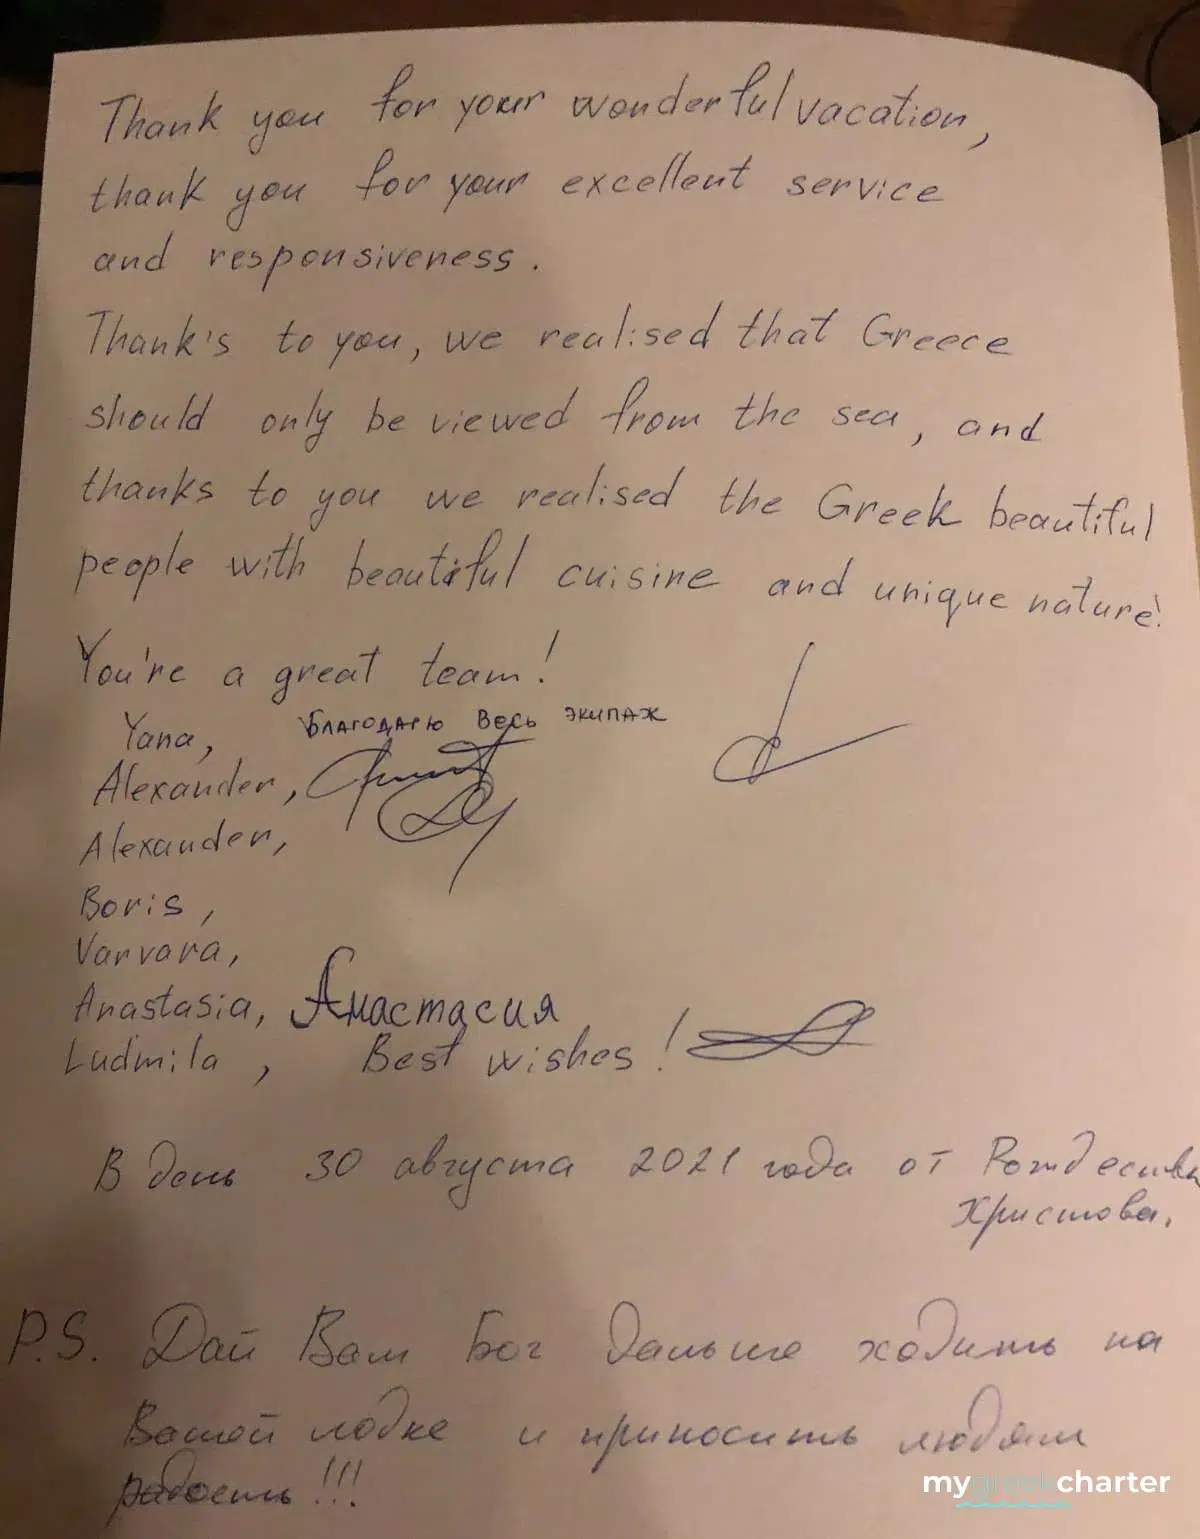 Thank you for your wonderful vacation,
thank you for your excellent service
and responsiveness.
Thank's to you, we realised that Greece
should only be viewed from the sea, and
thanks to you we realised the Greek beautiful
people with beautiful cuisine and unique nature!
You're a great team!
Yana,
Благодарю весь экипаж
Alexander,
Alexander,
Boris,
Varvara,
Anastasia, Анастасия
Ludmila, Best wishes!
В день 30 августа 2021 года от Рождества
Христова.
P.S. Дай Вам Бог дальше ходить на
Вашей лодке и приносить людям
радость!!!
mygreekcharter